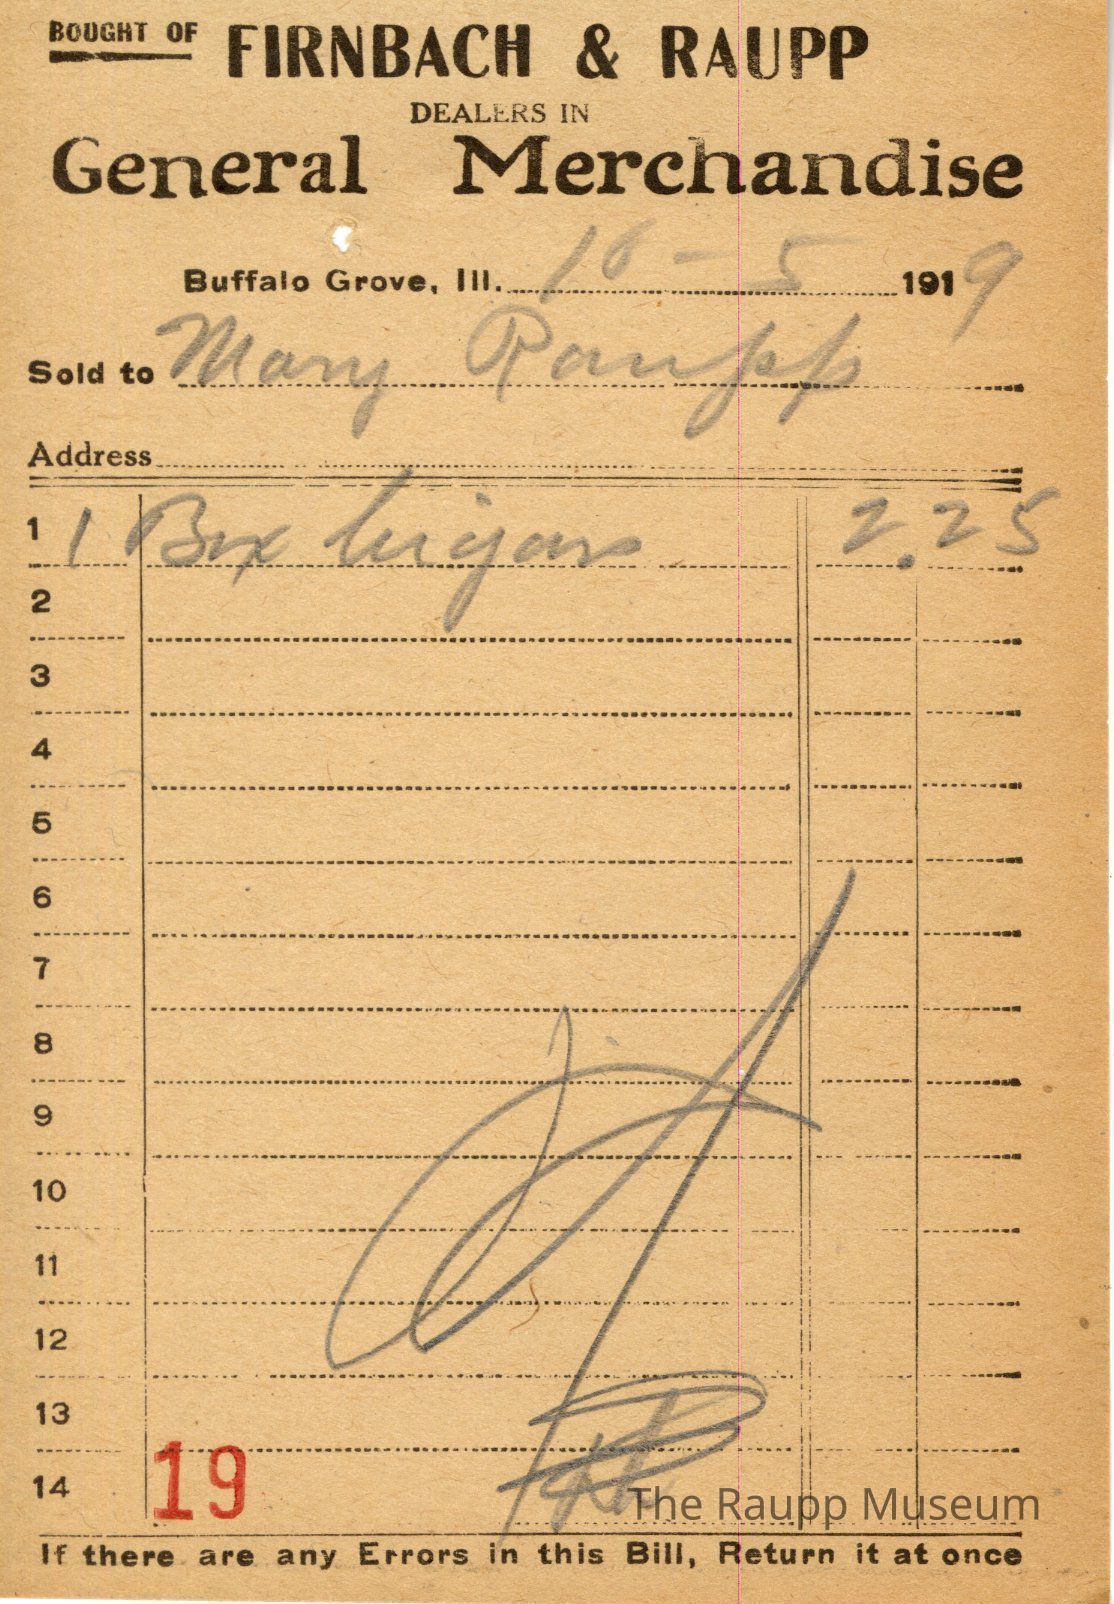 BOUGHT OF FIRNBACH & RAUPP
DEALERS IN
General Merchandise
Buffalo Grove, Ill. 16 - 5 1919
Sold to Mary Raupp
Address
1 1 Box Cigars 2.25
2
3
4
5
6
7
8
9
10
11
12
13
14 19
The Raupp Museum
If there are any Errors in this Bill, Return it at once